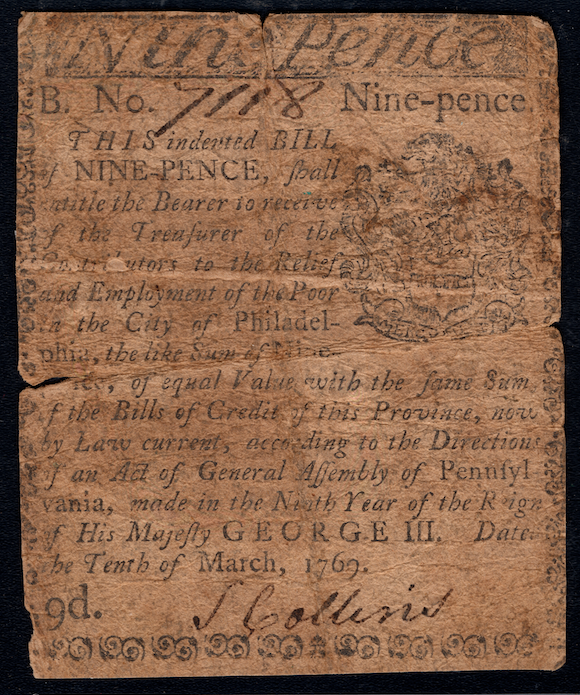 Nine Pence
B. No. 7118 Nine-pence.
THIS indented BILL
of NINE-PENCE, ſhall
entitle the Bearer to receive
of the Treaſurer of the
Contributors to the Relief
and Employment of the Poor
in the City of Philadel-
phia, the like Sum of Nine-
pence, of equal Value with the ſame Sum
of the Bills of Credit of this Province, now
by Law current, according to the Directions
of an Act of General Aſſembly of Pennſyl
vania, made in the Ninth Year of the Reign
of His Majeſty GEORGE III. Dated
the Tenth of March, 1769.
9d. S Collins